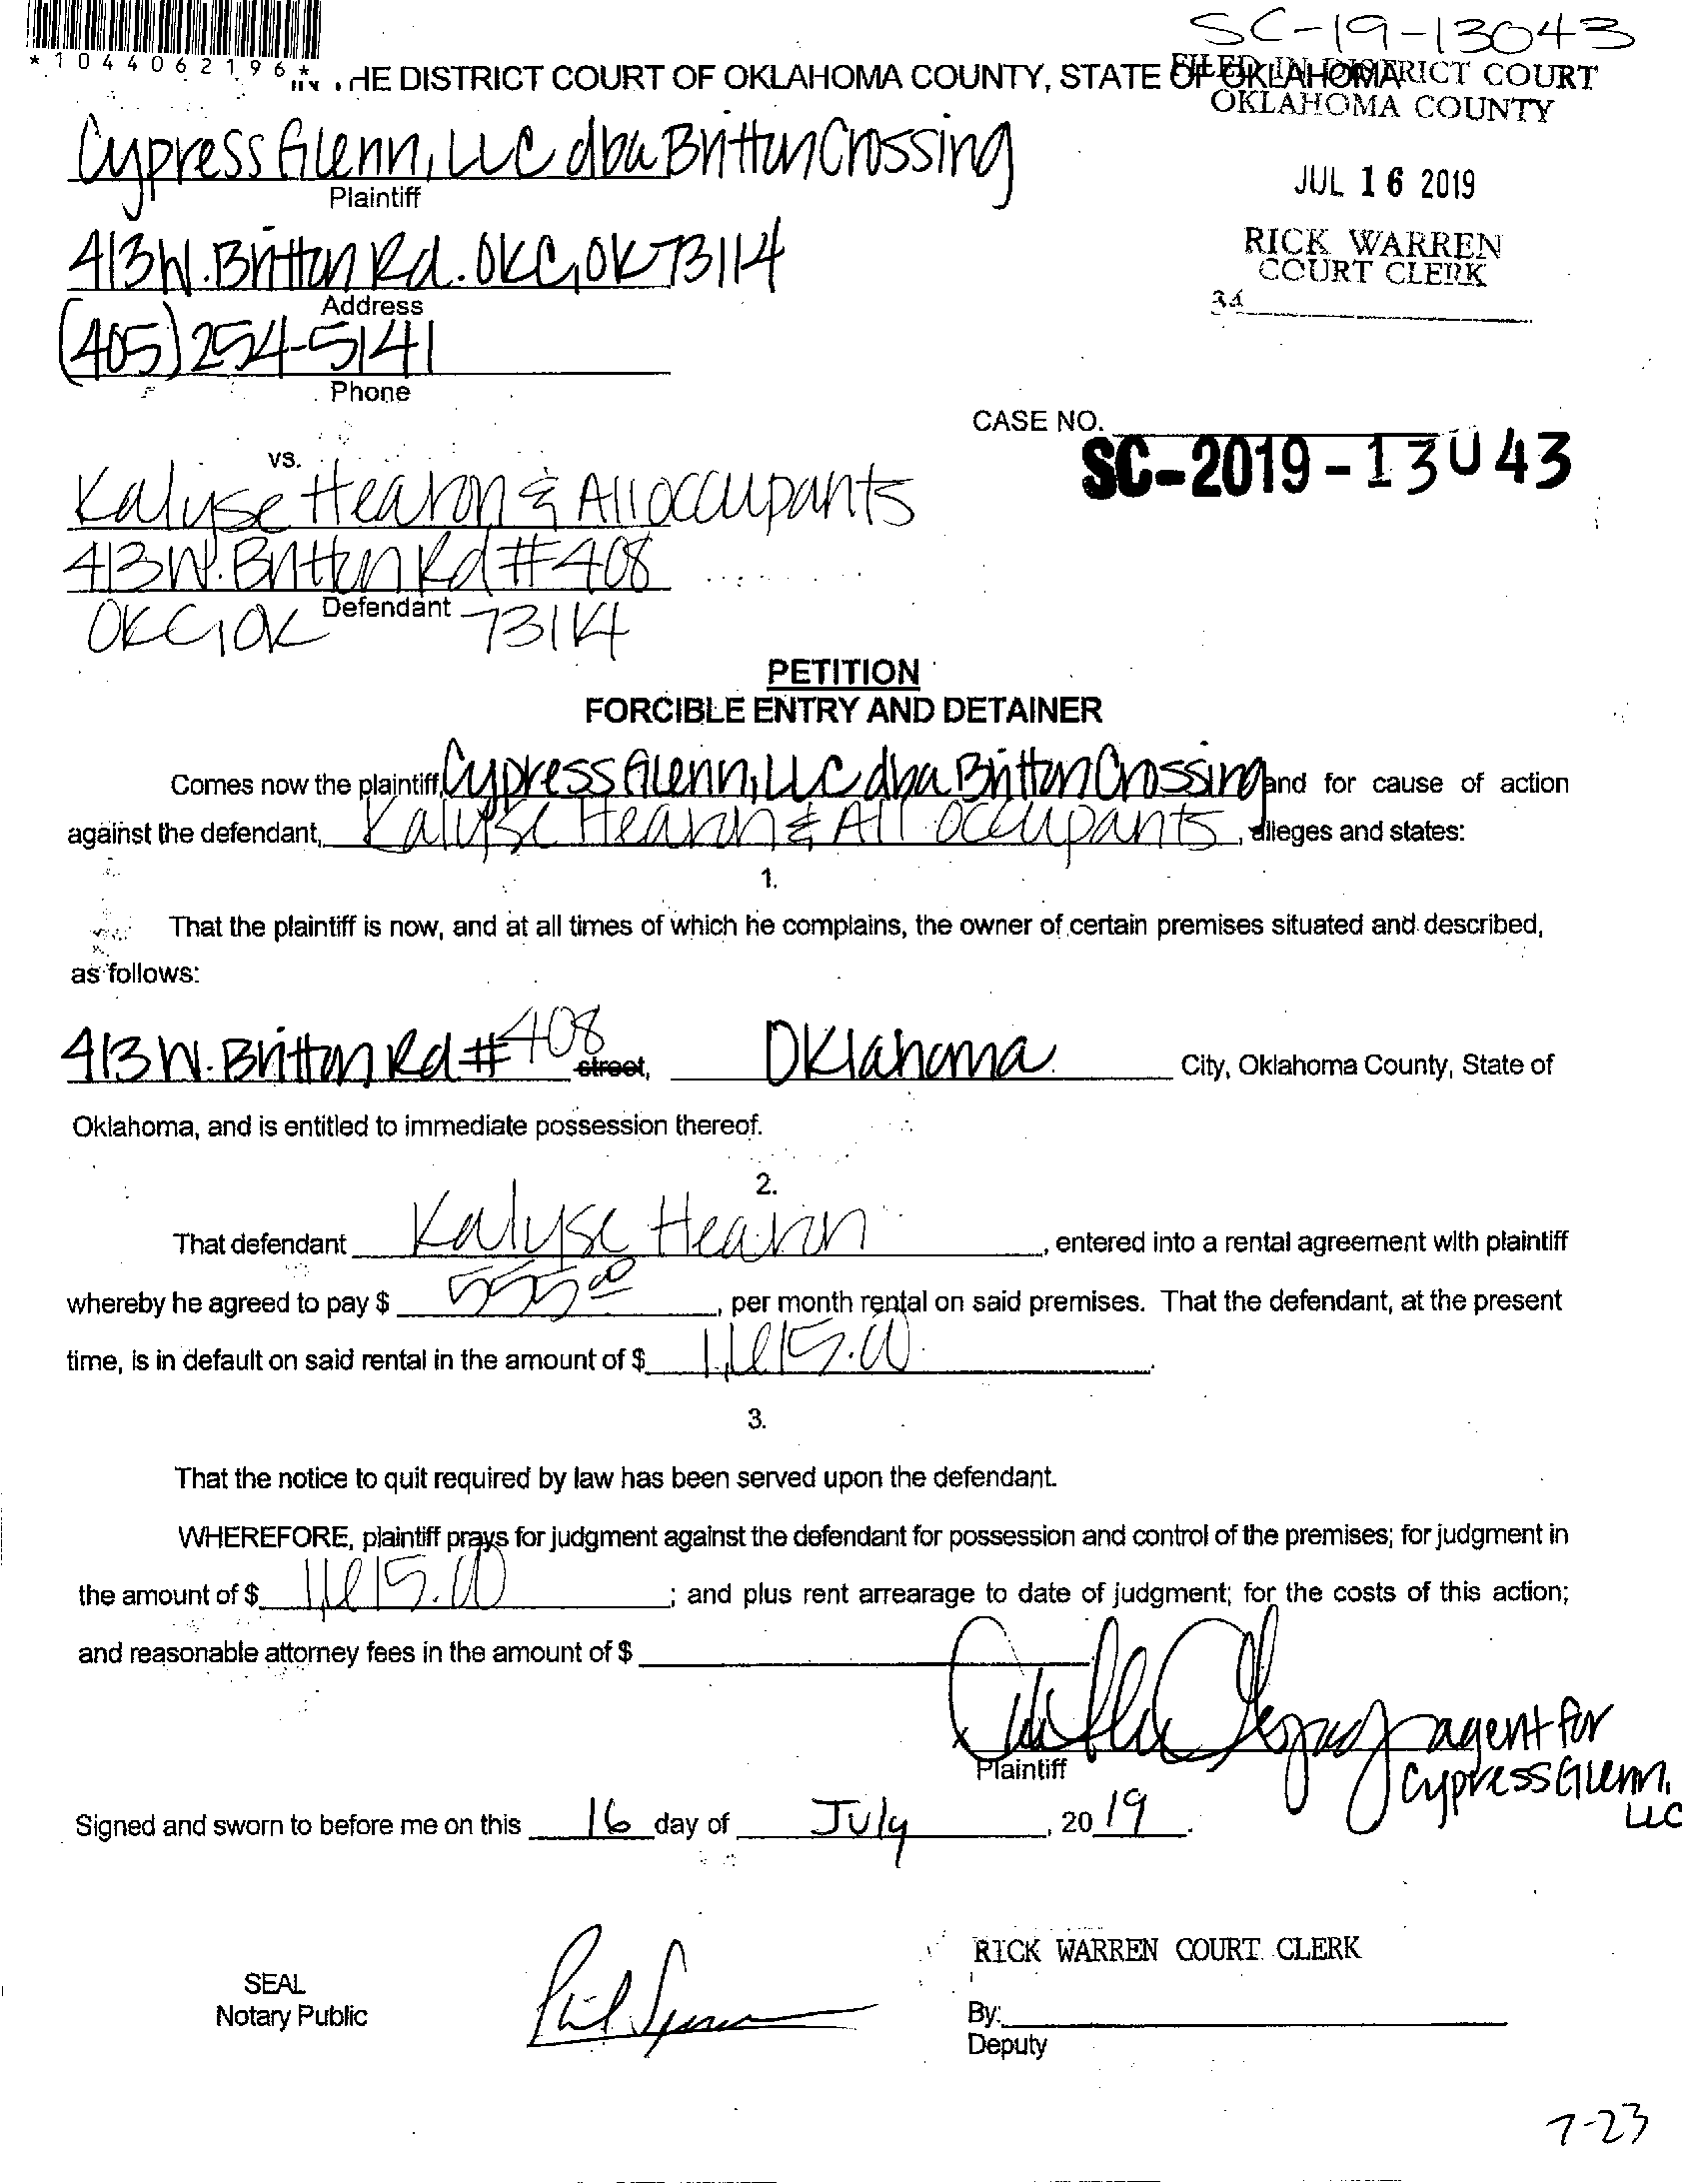 SC-19-13043
*1044062196*
IN THE DISTRICT COURT OF OKLAHOMA COUNTY, STATE OF OKLAHOMA
FILED IN DISTRICT COURT
OKLAHOMA COUNTY
Cypress Glenn, LLC dba Britton Crossing
Plaintiff
JUL 16 2019
413 W. Britton Rd. OKC, OK 73114
Address
RICK WARREN
COURT CLERK
34
(405) 254-5141
Phone
CASE NO.
SC-2019-13043
vs.
Kalyse Hearon & All occupants
413 W. Britton Rd #408
Defendant
OKC, OK 73114
PETITION
FORCIBLE ENTRY AND DETAINER
Comes now the plaintiff, Cypress Glenn, LLC dba Britton Crossing and for cause of action
against the defendant, Kalyse Hearon & All occupants, alleges and states:
1.
That the plaintiff is now, and at all times of which he complains, the owner of certain premises situated and described,
as follows:
413 W. Britton Rd #408 street, Oklahoma City, Oklahoma County, State of
Oklahoma, and is entitled to immediate possession thereof.
2.
That defendant Kalyse Hearon, entered into a rental agreement with plaintiff
whereby he agreed to pay $ 555.00, per month rental on said premises. That the defendant, at the present
time, is in default on said rental in the amount of $
3.
That the notice to quit required by law has been served upon the defendant.
WHEREFORE, plaintiff prays for judgment against the defendant for possession and control of the premises; for judgment in
the amount of $ ; and plus rent arrearage to date of judgment; for the costs of this action;
and reasonable attorney fees in the amount of $
agent for
Cypress Glenn,
LLC
Plaintiff
Signed and sworn to before me on this 16 day of July, 2019.
RICK WARREN COURT CLERK
SEAL
Notary Public
By:
Deputy
7-23